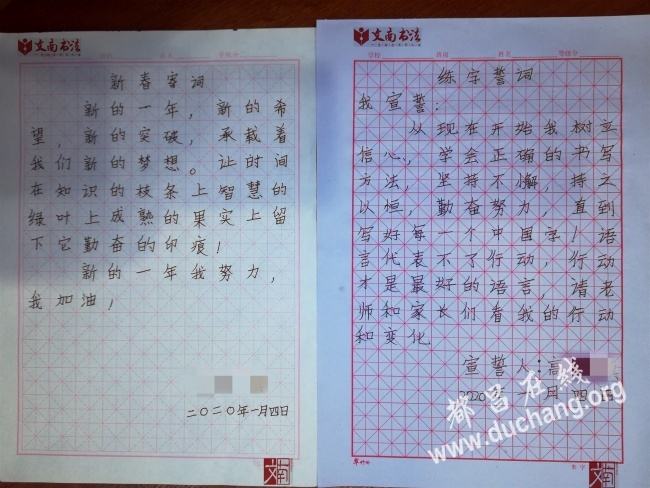 文南书法
新春寄词
新的一年，新的希
望，新的突破，承载着
我们新的梦想。让时间
在知识的枝条上智慧的
绿叶上成熟的果实上留
下它勤奋的印痕！
新的一年我努力，
我加油！
二〇二〇年一月四日
文南书法
学校 班级 姓名 等级分
练字誓词
我宣誓：
从现在开始我树立
信心，学会正确的书写
方法，坚持不懈，持之
以恒，勤奋努力，直到
写好每一个中国字！语
言代表不了行动，行动
才是最好的语言，请老
师和家长们看我的行动
和变化.
宣誓人：高
2020年一月四日
都昌在线
www.duchang.org